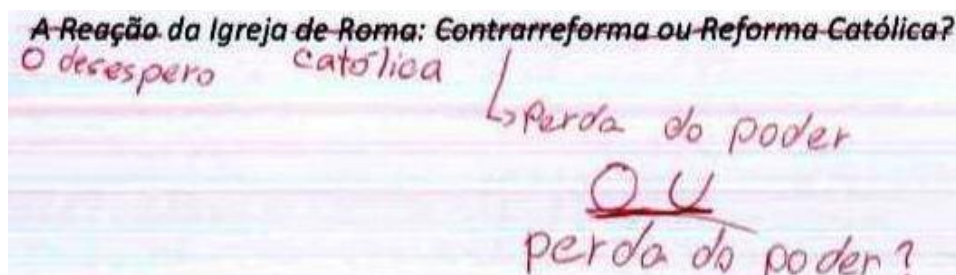 A Reação da Igreja de Roma: Contrarreforma ou Reforma Católica?
O desespero católica
↳ Perda do poder
OU
perda do poder?